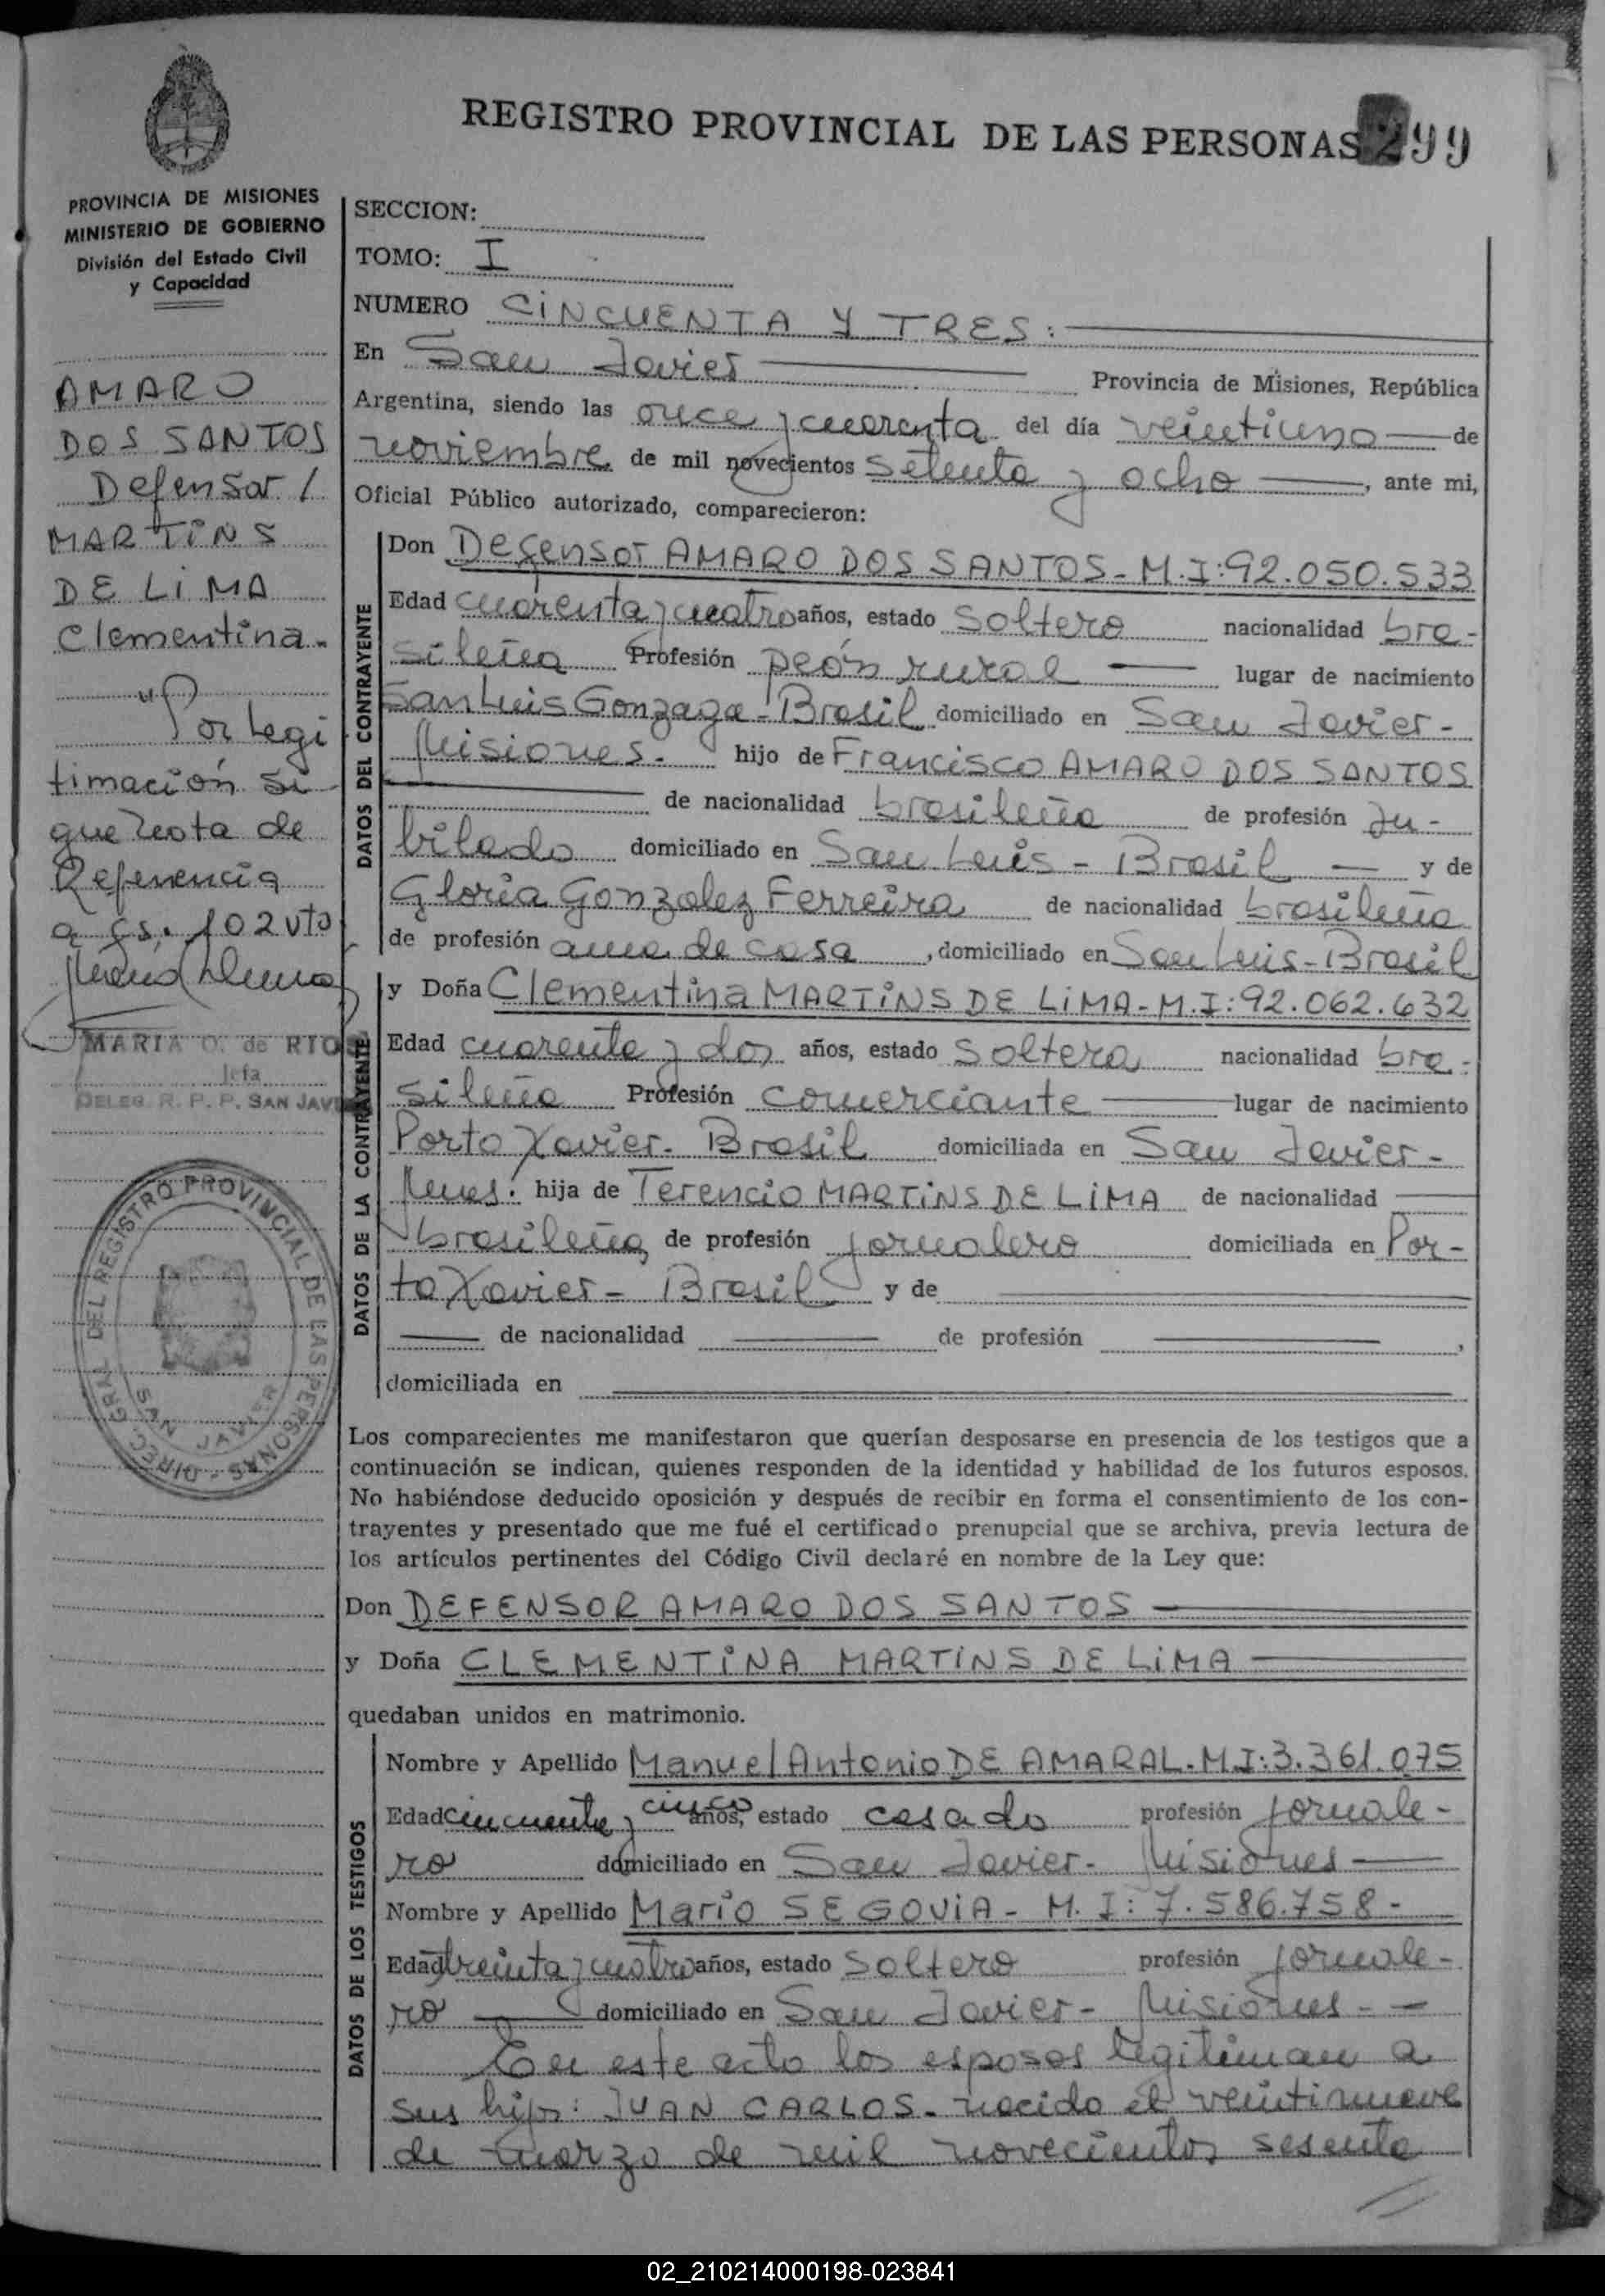 REGISTRO PROVINCIAL DE LAS PERSONAS 299
PROVINCIA DE MISIONES
MINISTERIO DE GOBIERNO
División del Estado Civil
y Capacidad
AMARO
DOS SANTOS
Defensor /
MARTINS
DE LIMA
Clementina.
"Por Legi
timación si
gue nota de
Referencia
a fs. 102 vto
MARIA O. de RIOS
Jefa
DELEG. R. P. P. SAN JAVIER
DIREC. GRAL. DEL REGISTRO PROVINCIAL DE LAS PERSONAS
SAN JAVIER
SECCION:
TOMO: I
NUMERO CINCUENTA Y TRES:
En San Javier Provincia de Misiones, República
Argentina, siendo las once y cuarenta del día veintiuno de
noviembre de mil novecientos setenta y ocho, ante mi,
Oficial Público autorizado, comparecieron:
DATOS DEL CONTRAYENTE
Don Defensor AMARO DOS SANTOS - M.I: 92.050.533
Edad cuarenta y cuatro años, estado soltero nacionalidad bra-
sileña Profesión peón rural lugar de nacimiento
San Luis Gonzaga - Brasil domiciliado en San Javier -
Misiones. hijo de Francisco AMARO DOS SANTOS
de nacionalidad brasileña de profesión Ju-
bilado domiciliado en San Luis - Brasil y de
Gloria Gonzalez Ferreira de nacionalidad brasileña
de profesión ama de casa, domiciliado en San Luis - Brasil
DATOS DE LA CONTRAYENTE
y Doña Clementina MARTINS DE LIMA - M.I: 92.062.632
Edad cuarenta y dos años, estado soltera nacionalidad bra-
sileña Profesión comerciante lugar de nacimiento
Porto Xavier - Brasil domiciliada en San Javier -
Mnes. hija de Terencio MARTINS DE LIMA de nacionalidad
brasileña, de profesión jornalero domiciliada en Por-
to Xavier - Brasil y de
de nacionalidad de profesión ,
domiciliada en
Los comparecientes me manifestaron que querían desposarse en presencia de los testigos que a
continuación se indican, quienes responden de la identidad y habilidad de los futuros esposos.
No habiéndose deducido oposición y después de recibir en forma el consentimiento de los con-
trayentes y presentado que me fué el certificado prenupcial que se archiva, previa lectura de
los artículos pertinentes del Código Civil declaré en nombre de la Ley que:
Don DEFENSOR AMARO DOS SANTOS
y Doña CLEMENTINA MARTINS DE LIMA
quedaban unidos en matrimonio.
DATOS DE LOS TESTIGOS
Nombre y Apellido Manuel Antonio DE AMARAL. M.I: 3.361.075
Edad cincuenta y cinco años, estado casado profesión jornale-
ro domiciliado en San Javier - Misiones
Nombre y Apellido Mario SEGOVIA - M. I: 7.586.758 -
Edad treinta y cuatro años, estado soltero profesión jornale-
ro domiciliado en San Javier - Misiones -
En este acto los esposos legitiman a
sus hijos: JUAN CARLOS - nacido el veintinueve
de marzo de mil novecientos sesenta
02_210214000198-023841